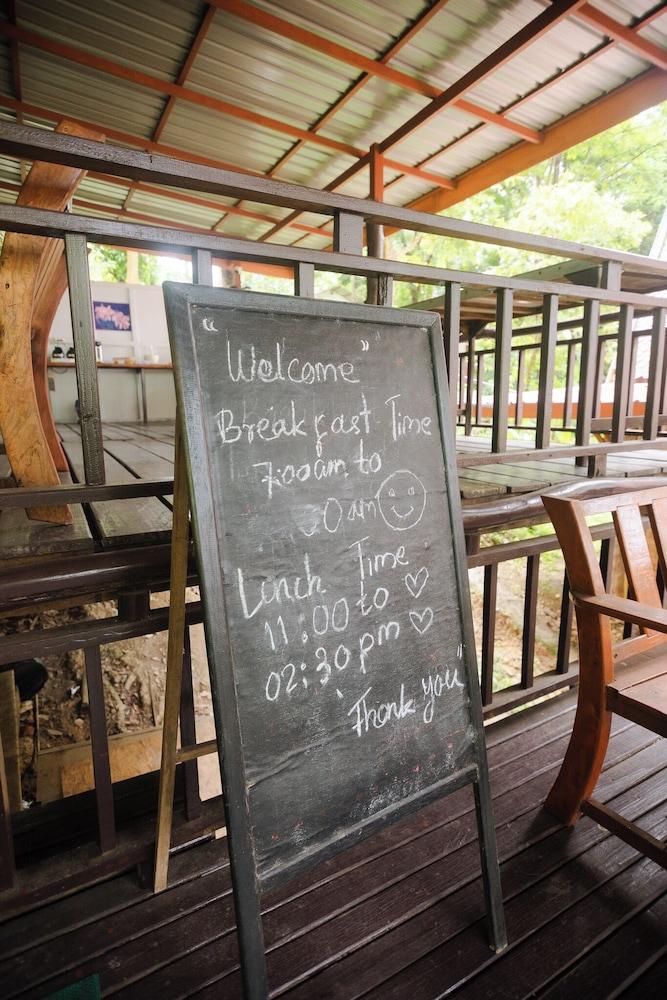 "Welcome"
Breakfast Time
7:00am to
0 am
Lunch Time
11:00 to
02:30 pm
Thank you"